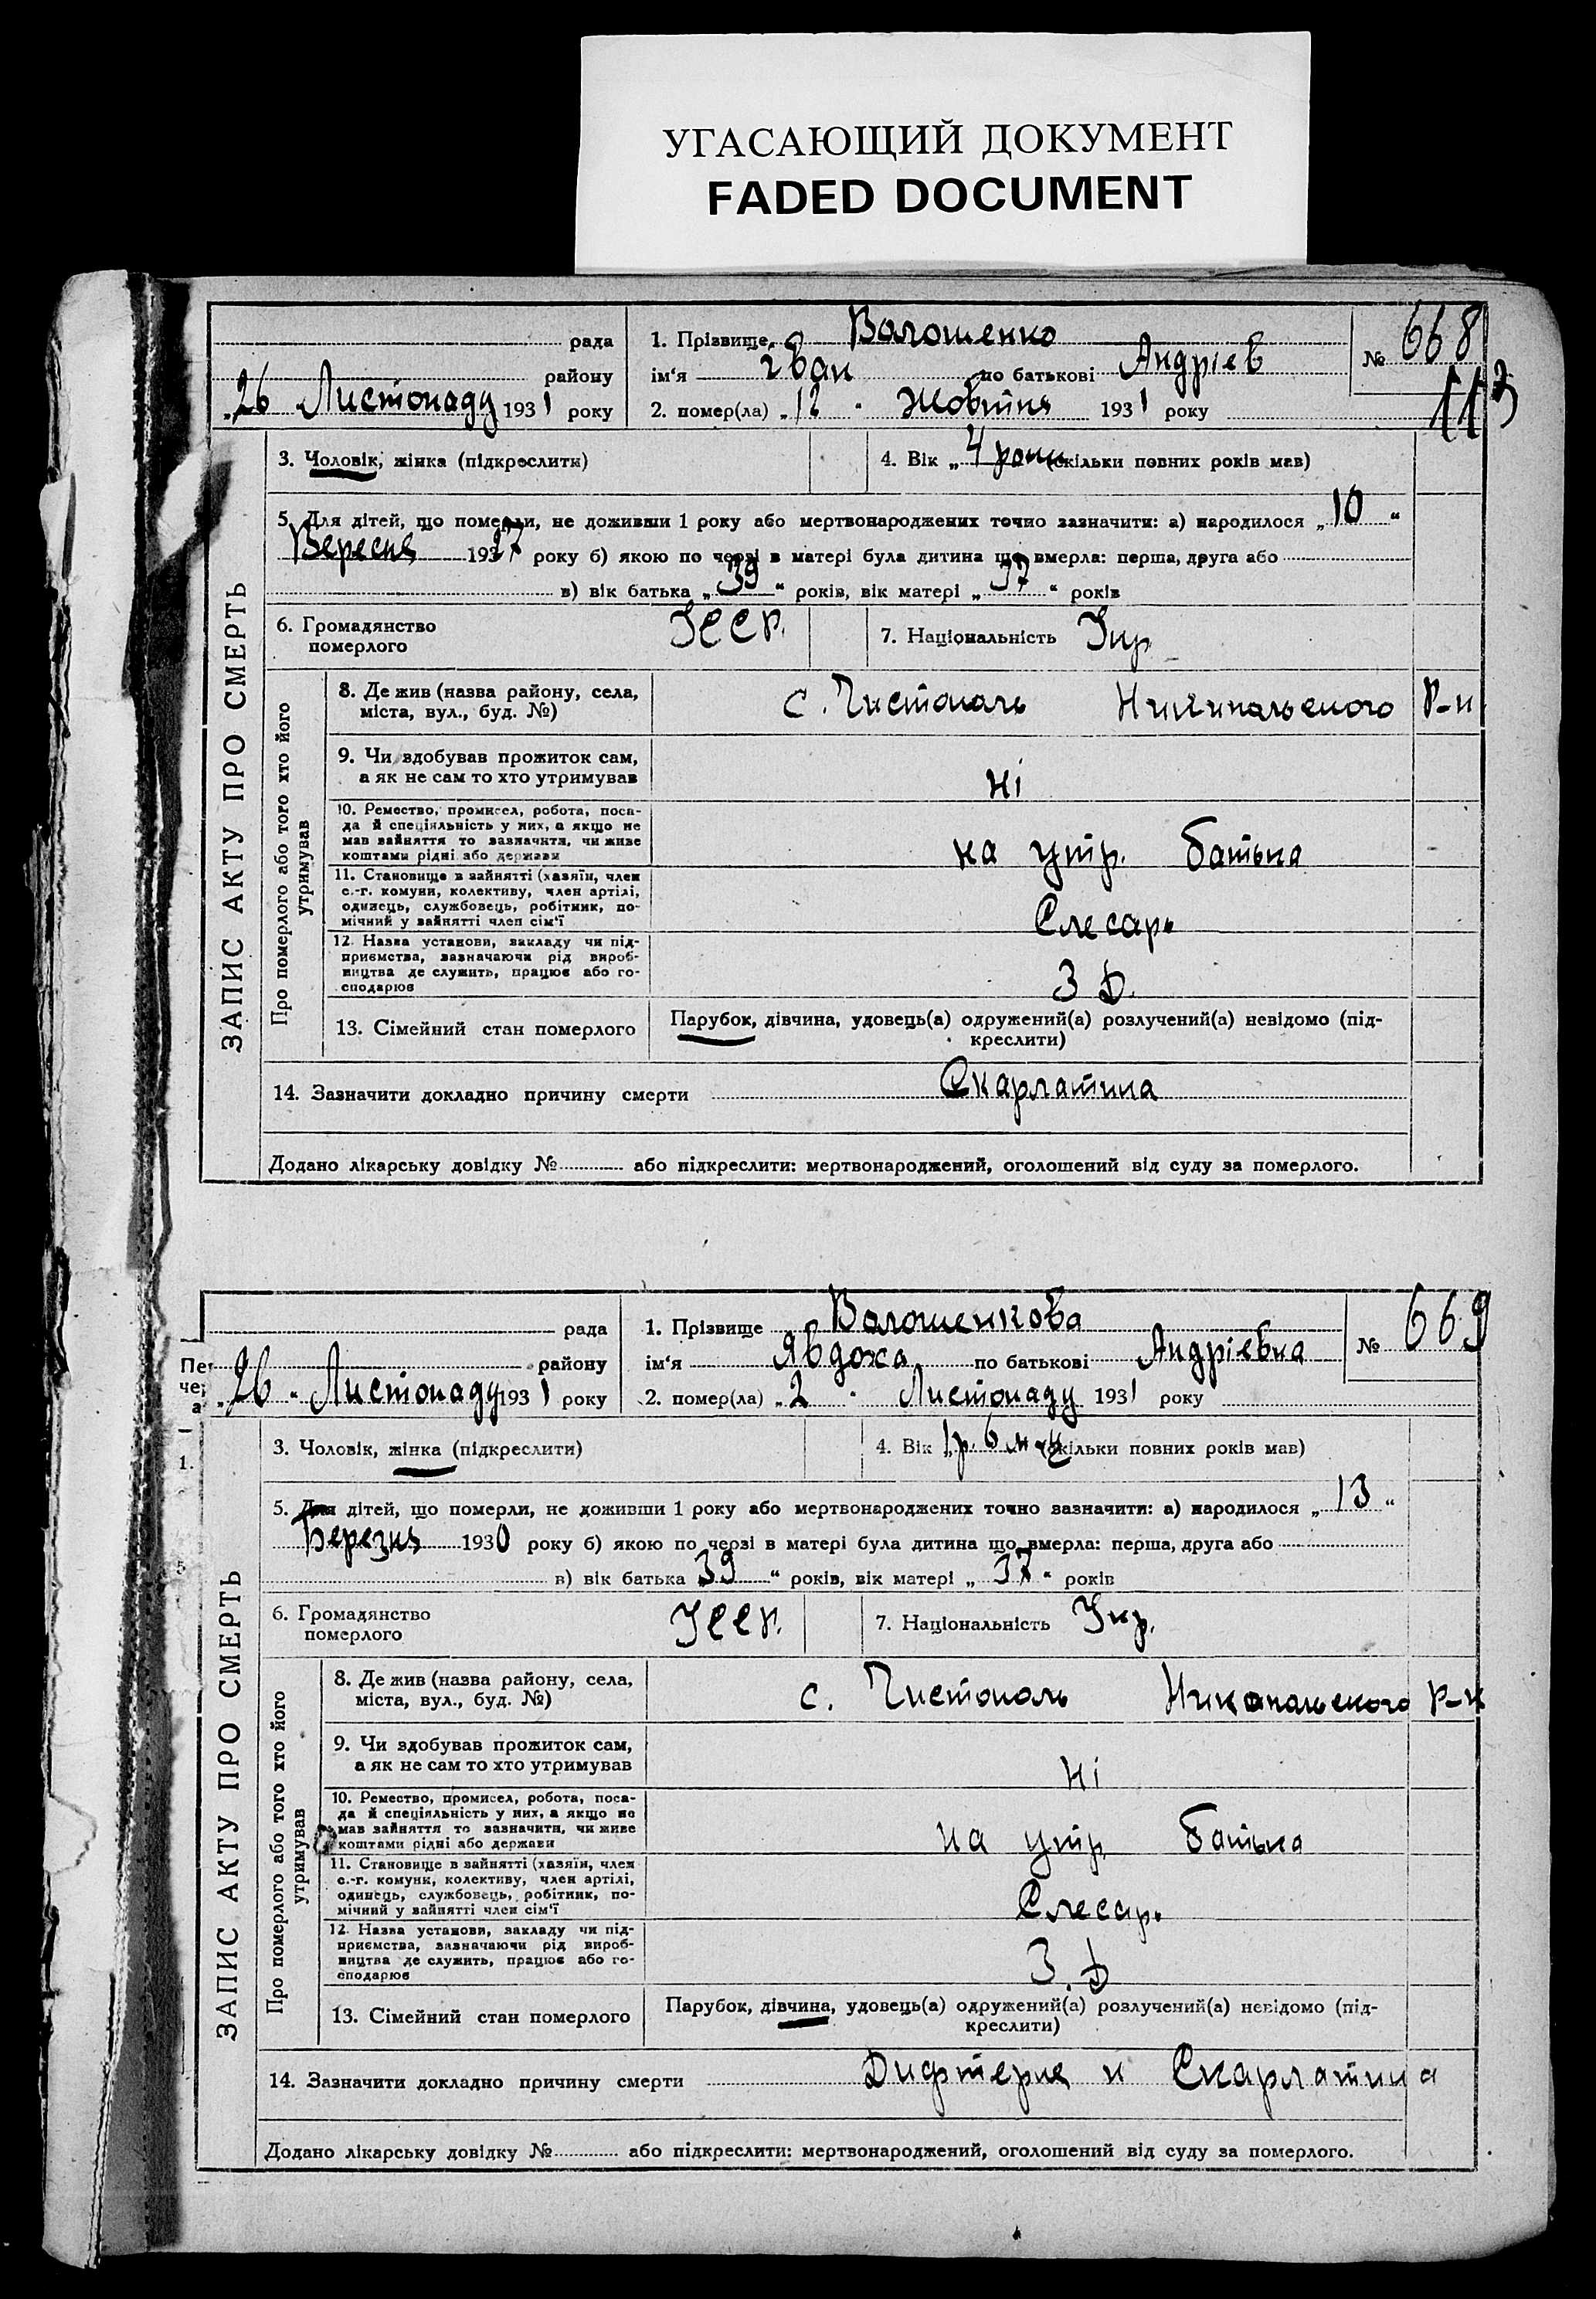 УГАСАЮЩИЙ ДОКУМЕНТ
FADED DOCUMENT
рада
району
„26 Листопаду 1931 року
1. Прізвище Волошенко
ім‘я Іван по батькові Андріев
2. помер(ла) „12 Жовтня 1931 року
№ 668
113
ЗАПИС АКТУ ПРО СМЕРТЬ
3. Чоловік, жінка (підкреслити)
4. Вік „4 роки (скільки повних років мав)
5. Для дітей, що померли, не доживши 1 року або мертвонароджених точно зазначити: а) народилося „10“
Вересня 1927 року б) якою по черзі в матері була дитина що вмерла: перша, друга або
в) вік батька „39“ років, вік матері „37“ років
6. Громадянство
померлого
УССР.
7. Національність Укр
Про померлого або того хто його
утримував
8. Де жив (назва району, села,
міста, вул., буд. №)
с. Чистополь Никипольského р-н
9. Чи здобував прожиток сам,
а як не сам то хто утримував
ні
10. Ремество, промисел, робота, поса-
да й спеціяльність у них, а якщо не
мав зайняття то зазначити, чи живе
коштами рідні або держави
на утр. батька
11. Становище в зайнятті (хазяїн, член
с.-г. комуни, колективу, член артілі,
одинець, службовець, робітник, по-
мічний у зайнятті член сім‘ї
Слесарь
12. Назва установи, закладу чи під-
приємства, зазначаючи рід вироб-
ництва де служить, працює або го-
сподарює
З Д.
13. Сімейний стан померлого
Парубок, дівчина, удовець(а) одружений(а) розлучений(а) невідомо (під-
креслити)
14. Зазначити докладно причину смерти Скарлатина
Додано лікарську довідку № або підкреслити: мертвонароджений, оголошений від суду за померлого.
рада
району
„26 Листопаду 1931 року
1. Прізвище Волошенкова
ім‘я Явдоха по батькові Андріевна
2. помер(ла) „2 Листопаду 1931 року
№ 669
Пе
че
а
1.
5
ЗАПИС АКТУ ПРО СМЕРТЬ
3. Чоловік, жінка (підкреслити)
4. Вік „1 р. 6 м-ц (скільки повних років мав)
5. Для дітей, що померли, не доживши 1 року або мертвонароджених точно зазначити: а) народилося „13“
Березня 1930 року б) якою по черзі в матері була дитина що вмерла: перша, друга або
в) вік батька 39“ років, вік матері „37“ років
6. Громадянство
померлого
УССР.
7. Національність Укр.
Про померлого або того хто його
утримував
8. Де жив (назва району, села,
міста, вул., буд. №)
с. Чистополь Никопольского р-н
9. Чи здобував прожиток сам,
а як не сам то хто утримував
ні
10. Ремество, промисел, робота, поса-
да й спеціяльність у них, а якщо не
мав зайняття то зазначити, чи живе
коштами рідні або держави
на утр. батька
11. Становище в зайнятті (хазяїн, член
с.-г. комуни, колективу, член артілі,
одинець, службовець, робітник, по-
мічний у зайнятті член сім‘ї
Слесарь
12. Назва установи, закладу чи під-
приємства, зазначаючи рід вироб-
ництва де служить, працює або го-
сподарює
З. Д
13. Сімейний стан померлого
Парубок, дівчина, удовець(а) одружений(а) розлучений(а) невідомо (під-
креслити)
14. Зазначити докладно причину смерти Дифтерия и Скарлатина
Додано лікарську довідку № або підкреслити: мертвонароджений, оголошений від суду за померлого.